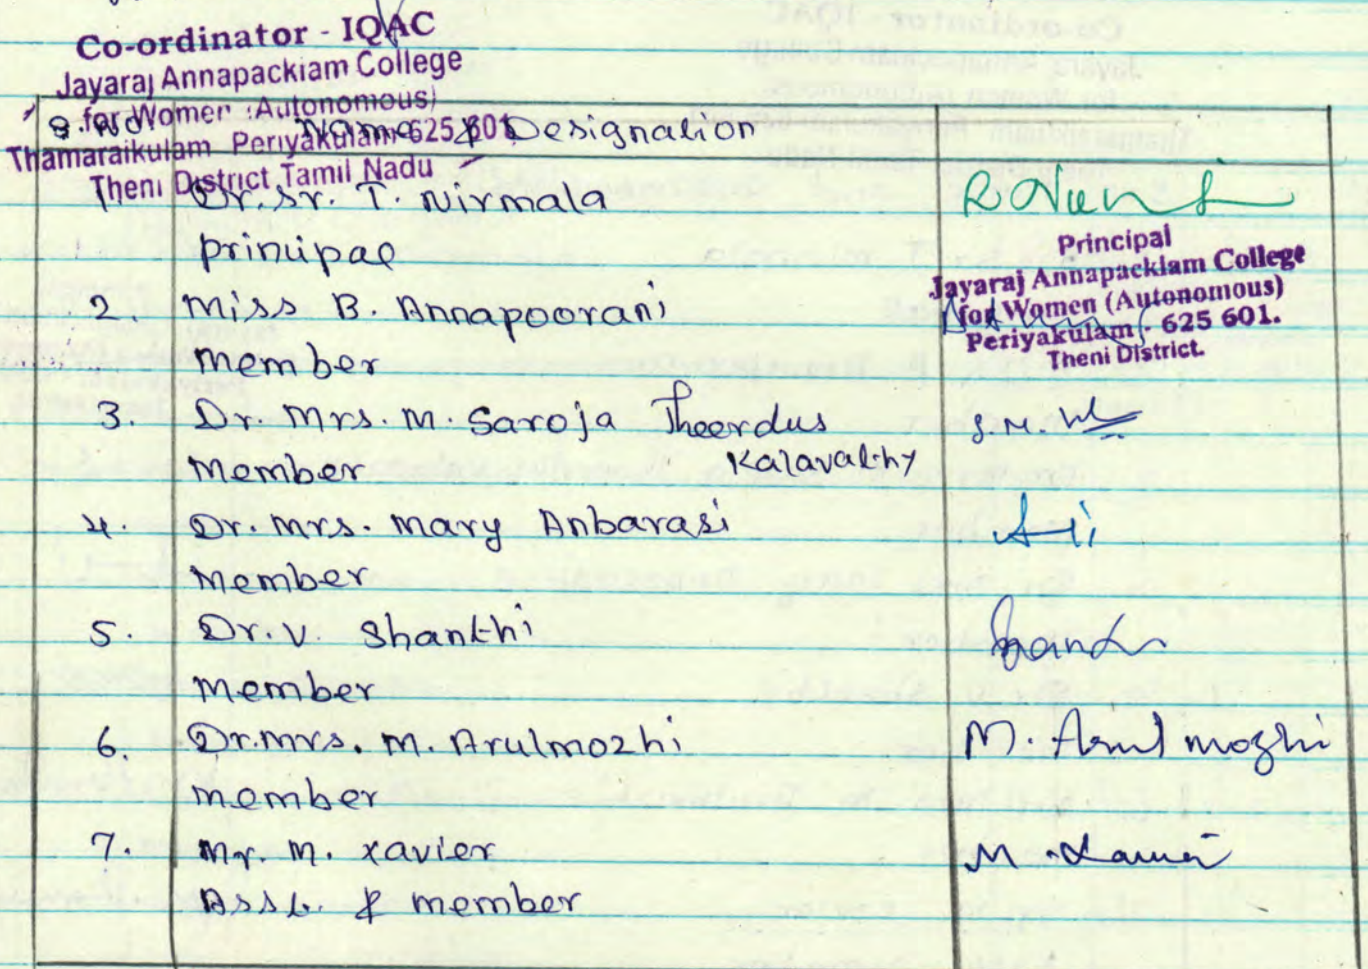 Co-ordinator - IQAC
Jayaraj Annapackiam College
for Women Autonomous)
Thamaraikulam Periyakulam 625 601
Theni District Tamil Nadu
S.No. Name & Designation
1. Dr. Sr. T. Nirmala
Principal
Principal
Jayaraj Annapackiam College
for Women (Autonomous)
Periyakulam - 625 601.
Theni District.
2 Miss B. Annapoorani
member
3. Dr. Mrs. M. Saroja Theerdus
Kalavathy
Member
4. Dr. Mrs. Mary Anbarasi
Member
5. Dr. V. Shanthi
Member
6. Dr. Mrs. M. Arulmozhi M. Arulmozhi
member
7. Mr. M. Xavier M. Xavier
Asst. & member